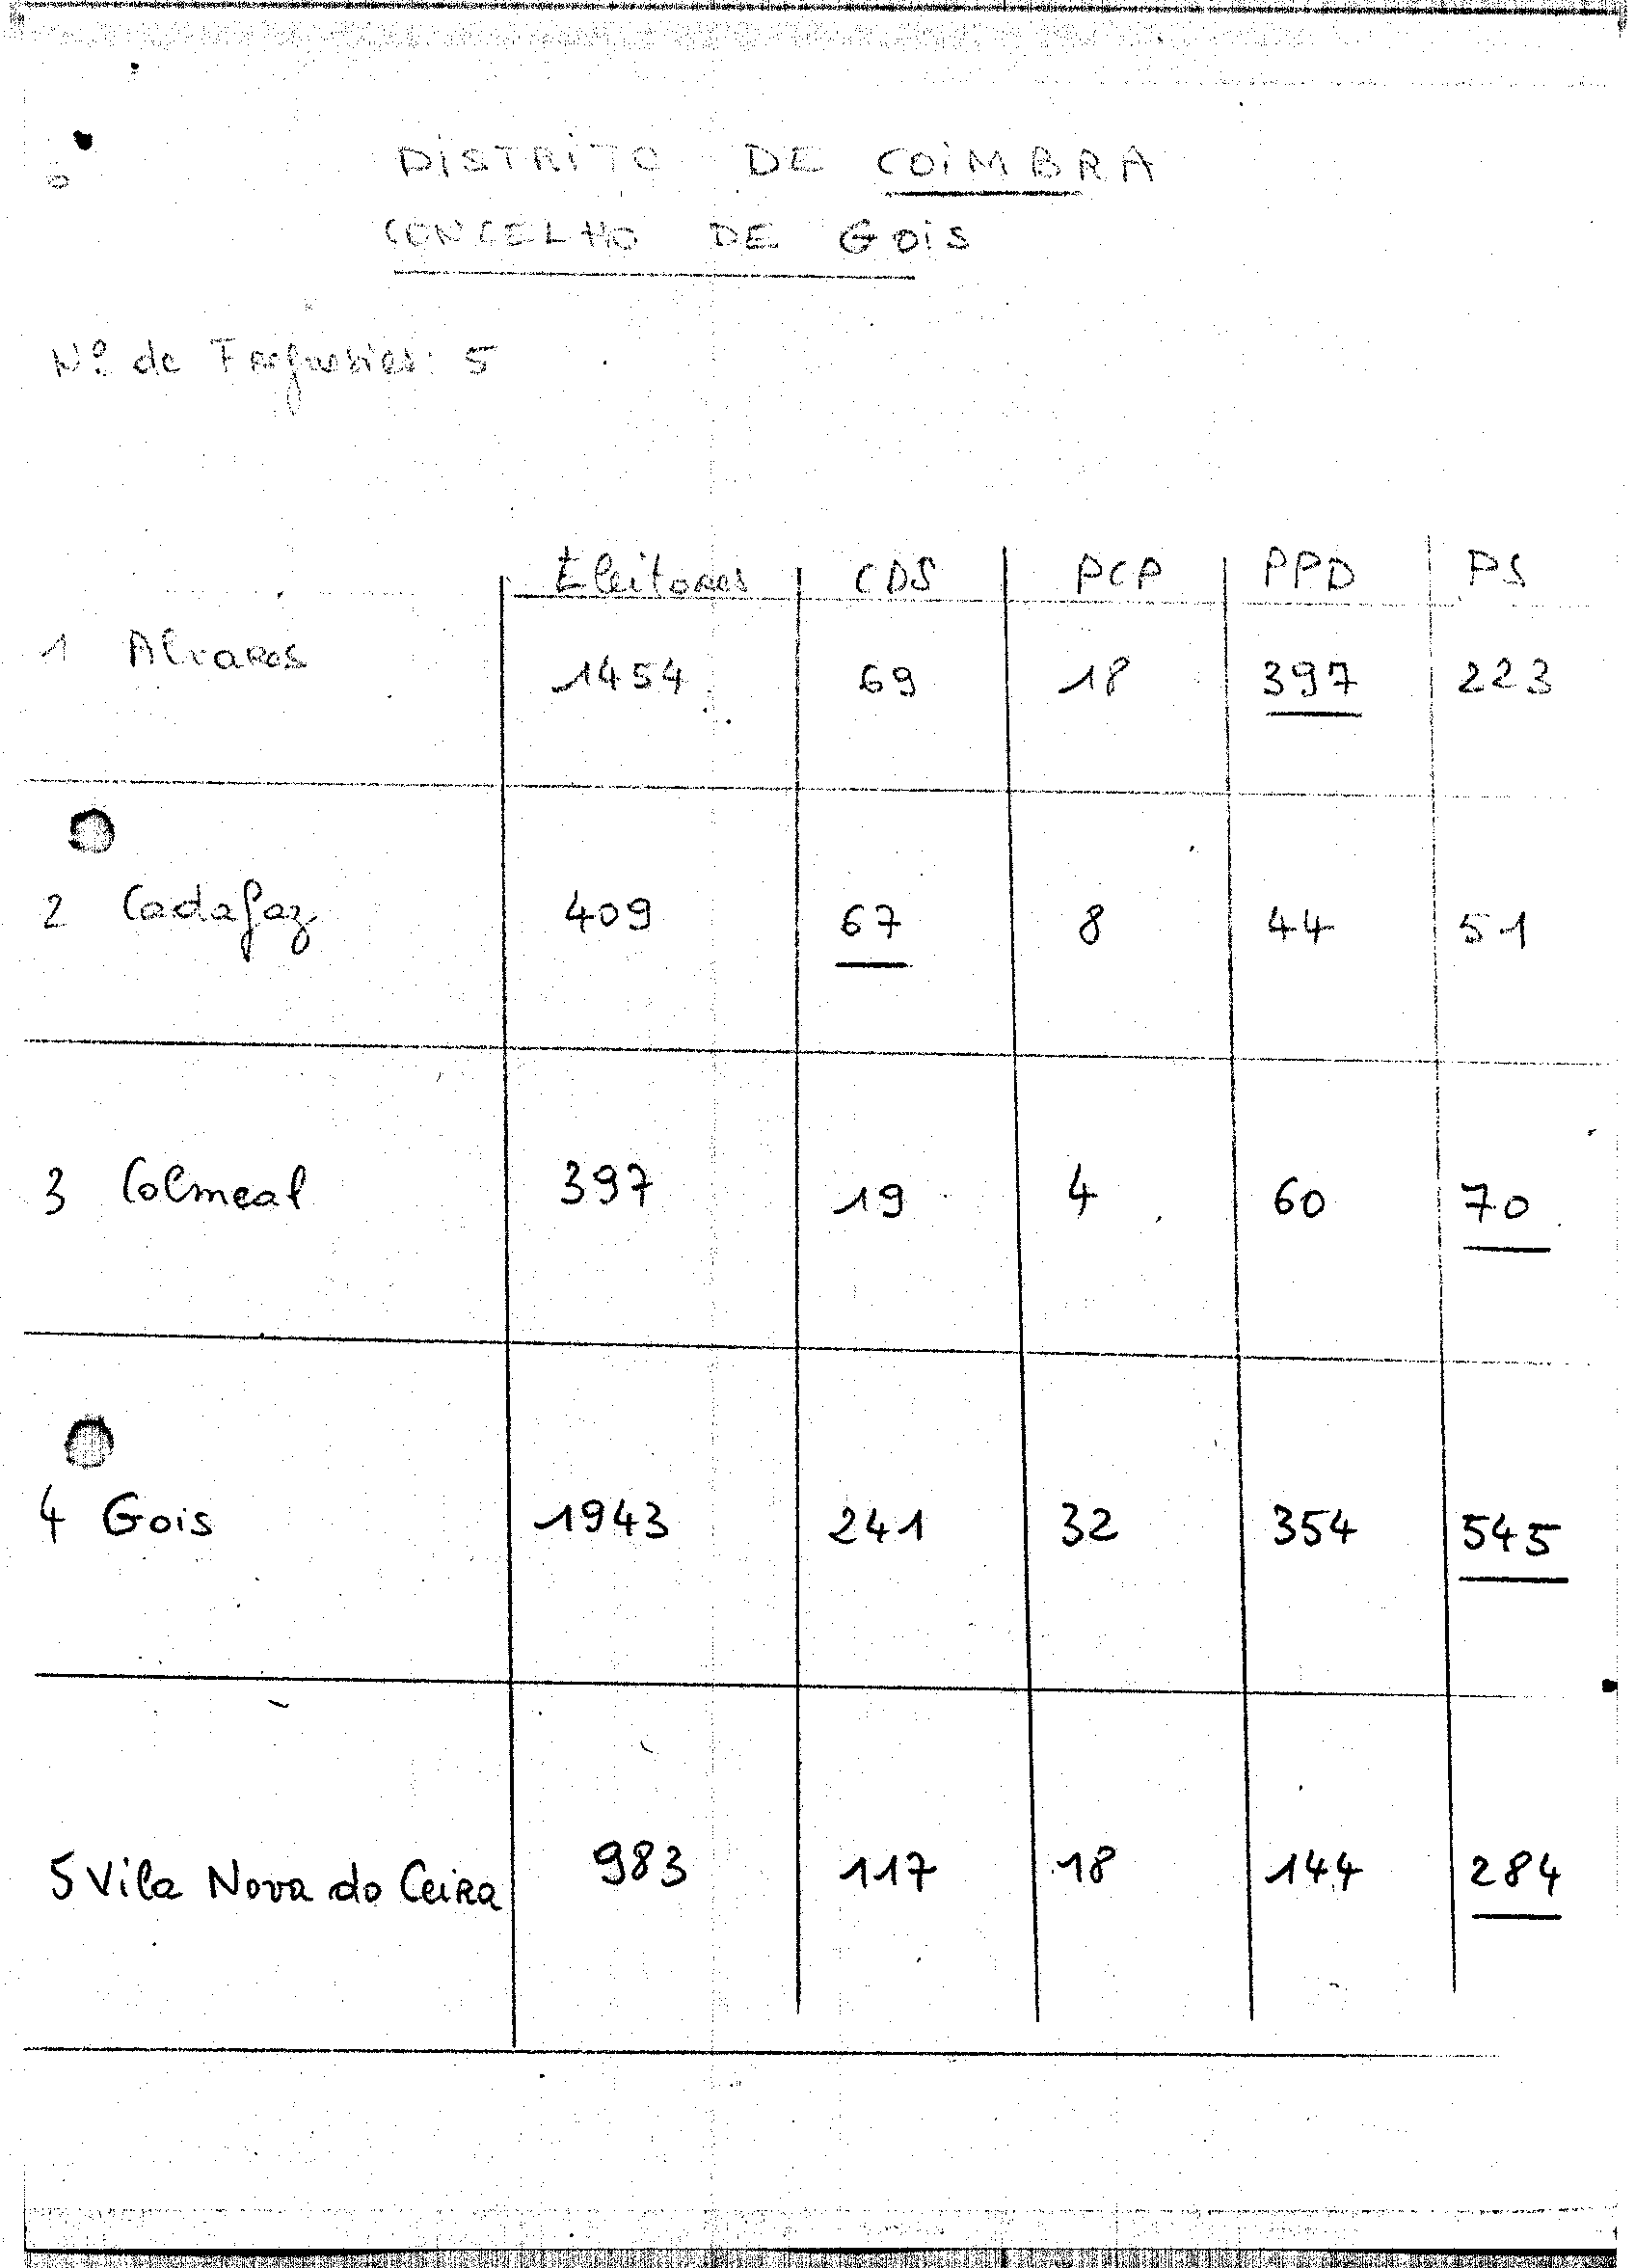 DISTRITO DE COIMBRA
CONCELHO DE GOIS
Nº de Freguesias: 5
Eleitores CDS PCP PPD PS
1 Alvares 1454 69 18 397 223
2 Cadafaz 409 67 8 44 51
3 Colmeal 397 19 4 60 70
4 Gois 1943 241 32 354 545
5 Vila Nova do Ceira 983 117 18 144 284